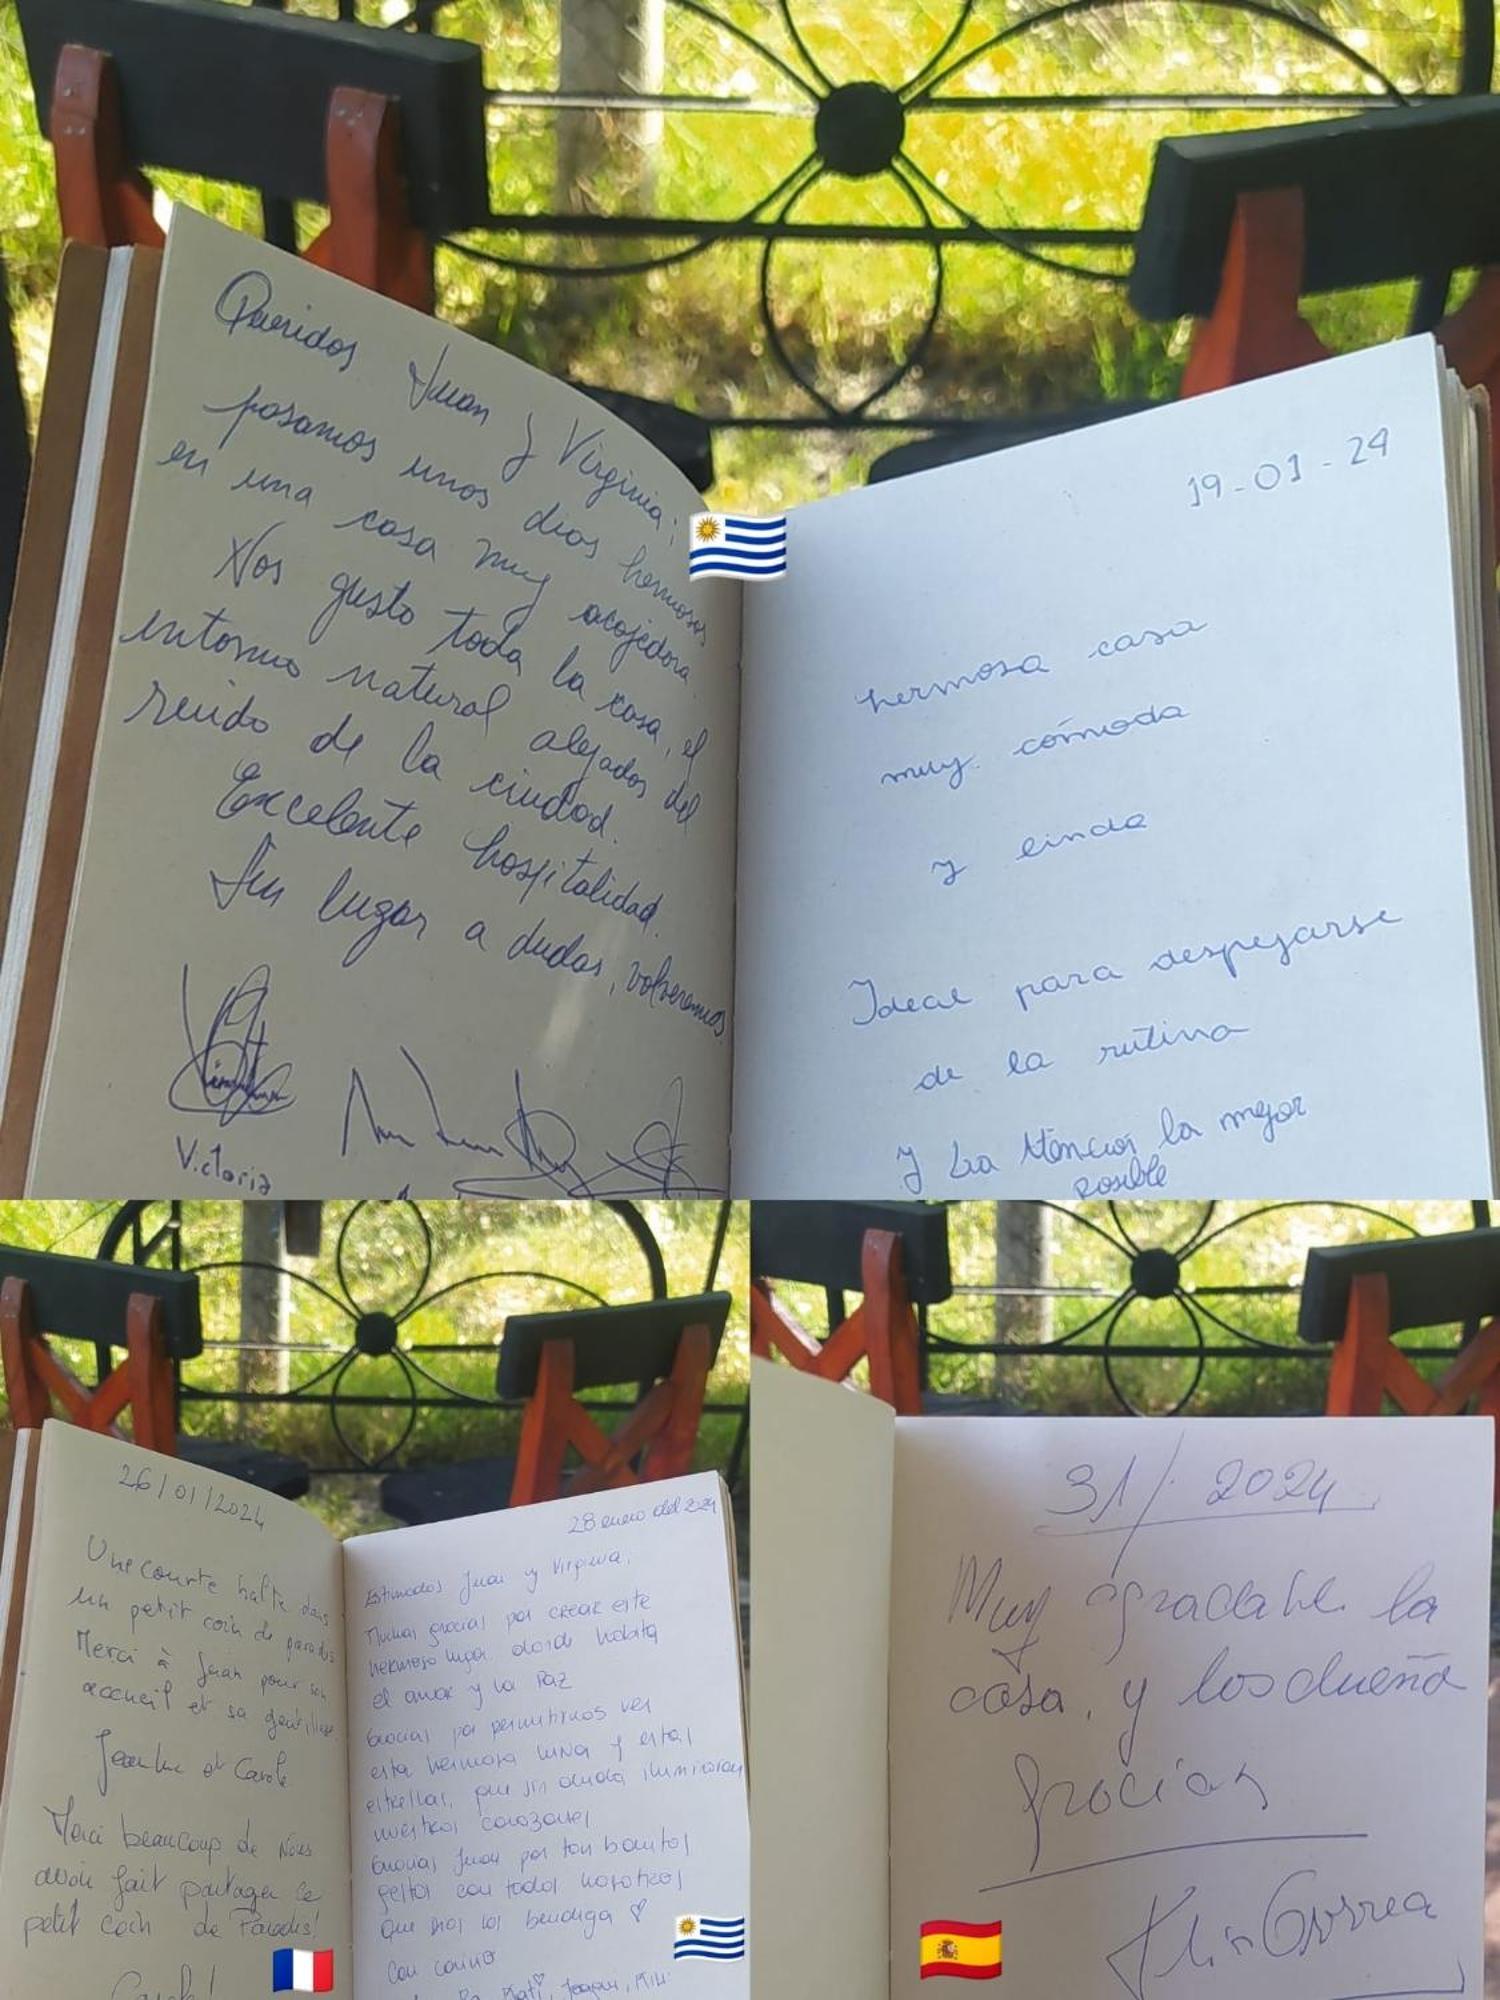 Queridos Juan y Virginia;
pasamos unos dias hermosos
en una casa muy acojedora.
Nos gusto toda la casa, el
entorno natural alejados del
ruido de la ciudad.
Excelente hospitalidad.
Sin lugar a dudas, volveremos.
Victoria
19-01-24
hermosa casa
muy cómoda
y linda
Ideal para despejarse
de la rutina
y La Atencion la mejor
posible
26/01/2024
Une courte halte dans
un petit coin de paradis
Merci à Juan pour son
accueil et sa gentillesse.
et Carole
Merci beaucoup de nous
avoir fait partager ce
petit coin de Paradis!
Carole!
28 enero del 2024
Estimados Juan y Virginia,
Muchas gracias por crear este
hermoso lugar donde habita
el amor y la Paz
Gracias por permitirnos ver
esta hermosa luna y estas
estrellas, que sin duda iluminaron
nuestros corazones
Gracias Juan por tan bonitos
gestos con todos nosotros
que Dios los bendiga
Con cariño
Kati, Joaqui,
31/ 2024
Muy agradable la
casa, y los dueña
gracias
Correa